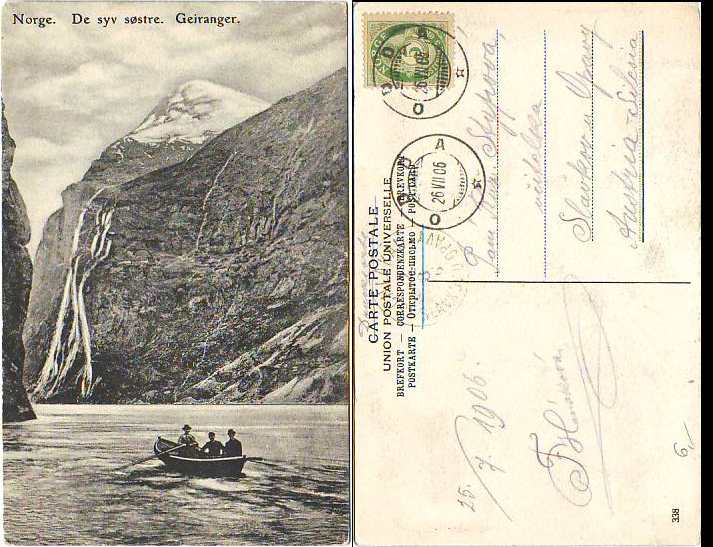 Norge. De syv søstre. Geiranger.
NORGE
5
26 VII 06
O D D A
26 VII 06
CARTE POSTALE
UNION POSTALE UNIVERSELLE
BREFKORT – CORRESPONDENZKARTE – BREVKORT
POSTKARTE – Открытое письмо – POST-CARD
učitelka
Slavkov u Opavy
Austria-Silesia
25. 7. 1906.
6,-
338